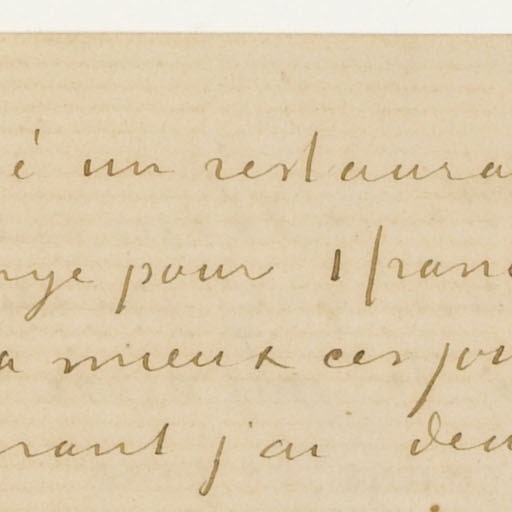 é un restaura
nge pour 1 franc
a mieux ces jou
rant j'ai deu